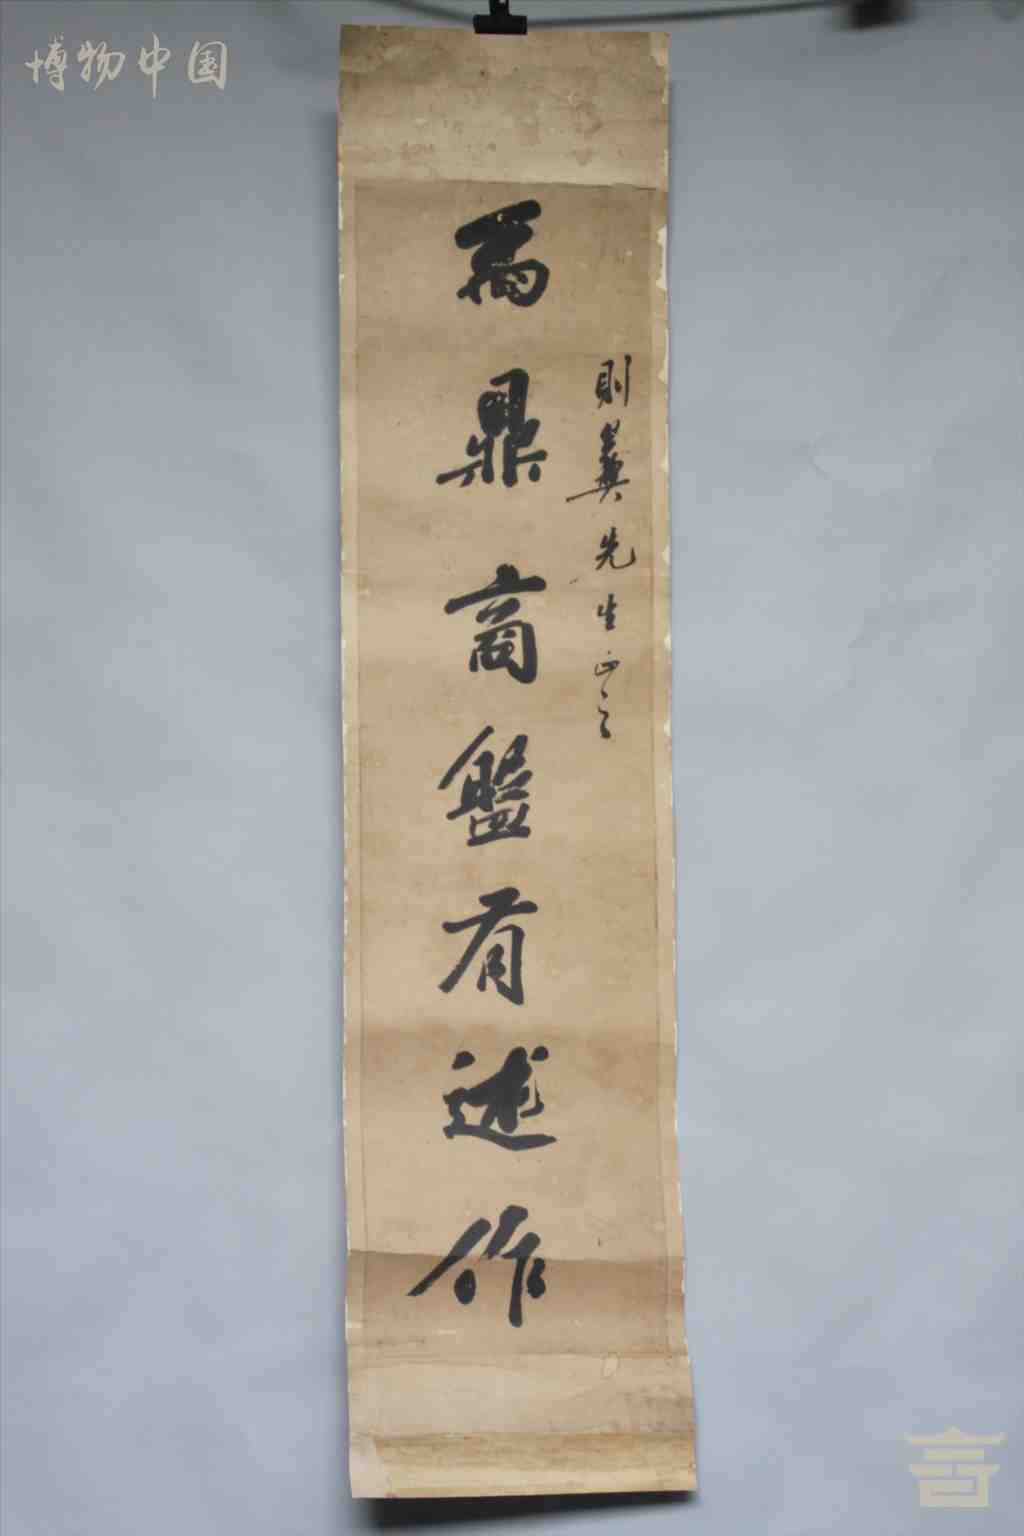 博物中国
則先生正之
禹鼎商盤有述作